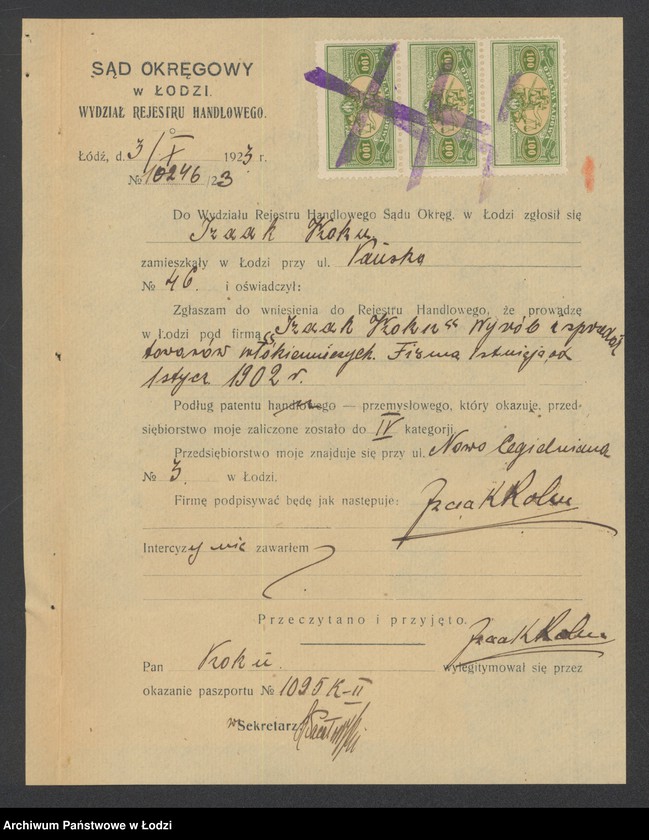 SĄD OKRĘGOWY
w ŁODZI.
WYDZIAŁ REJESTRU HANDLOWEGO.
Łódź, d. 3/X 1923 r.
№ 10246/23
100 100 100
100 100 100
Do Wydziału Rejestru Handlowego Sądu Okręg. w Łodzi zgłosił się
Izaak
zamieszkały w Łodzi przy ul. Pańska
№ 46. i oświadczył:
Zgłaszam do wniesienia do Rejestru Handlowego, że prowadzę
w Łodzi pod firmą „Izaak Wyrób i sprzedaż
towarów włókienniczych. Firma istnieje od
1 stycz 1902 r.
Podług patentu handlowego — przemysłowego, który okazuję, przed-
siębiorstwo moje zaliczone zostało do IV kategorji.
Przedsiębiorstwo moje znajduje się przy ul. Nowo Cegielniana
№ 3. w Łodzi.
Firmę podpisywać będę jak następuje: Izaak
Intercyzy nie zawarłem
Przeczytano i przyjęto.
Izaak
Pan wylegitymował się przez
okazanie paszportu № 1095 K-II
Sekretarz
Archiwum Państwowe w Łodzi